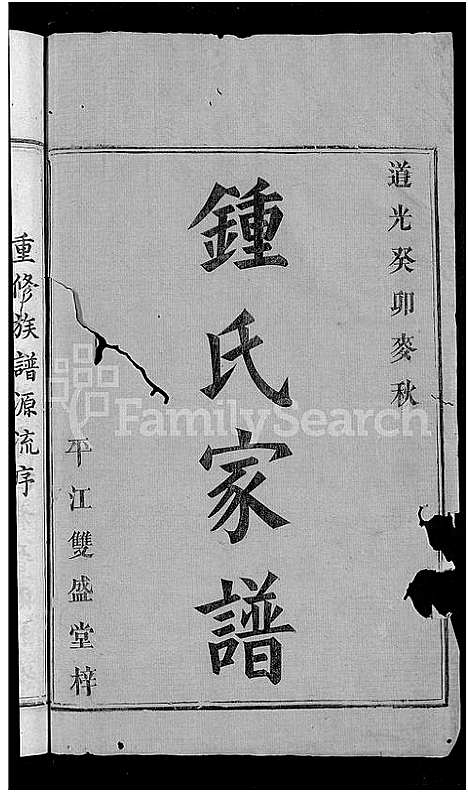 道光癸卯麥秋
鍾氏家譜
平江雙盛堂梓
重修族譜源流序
FamilySearch